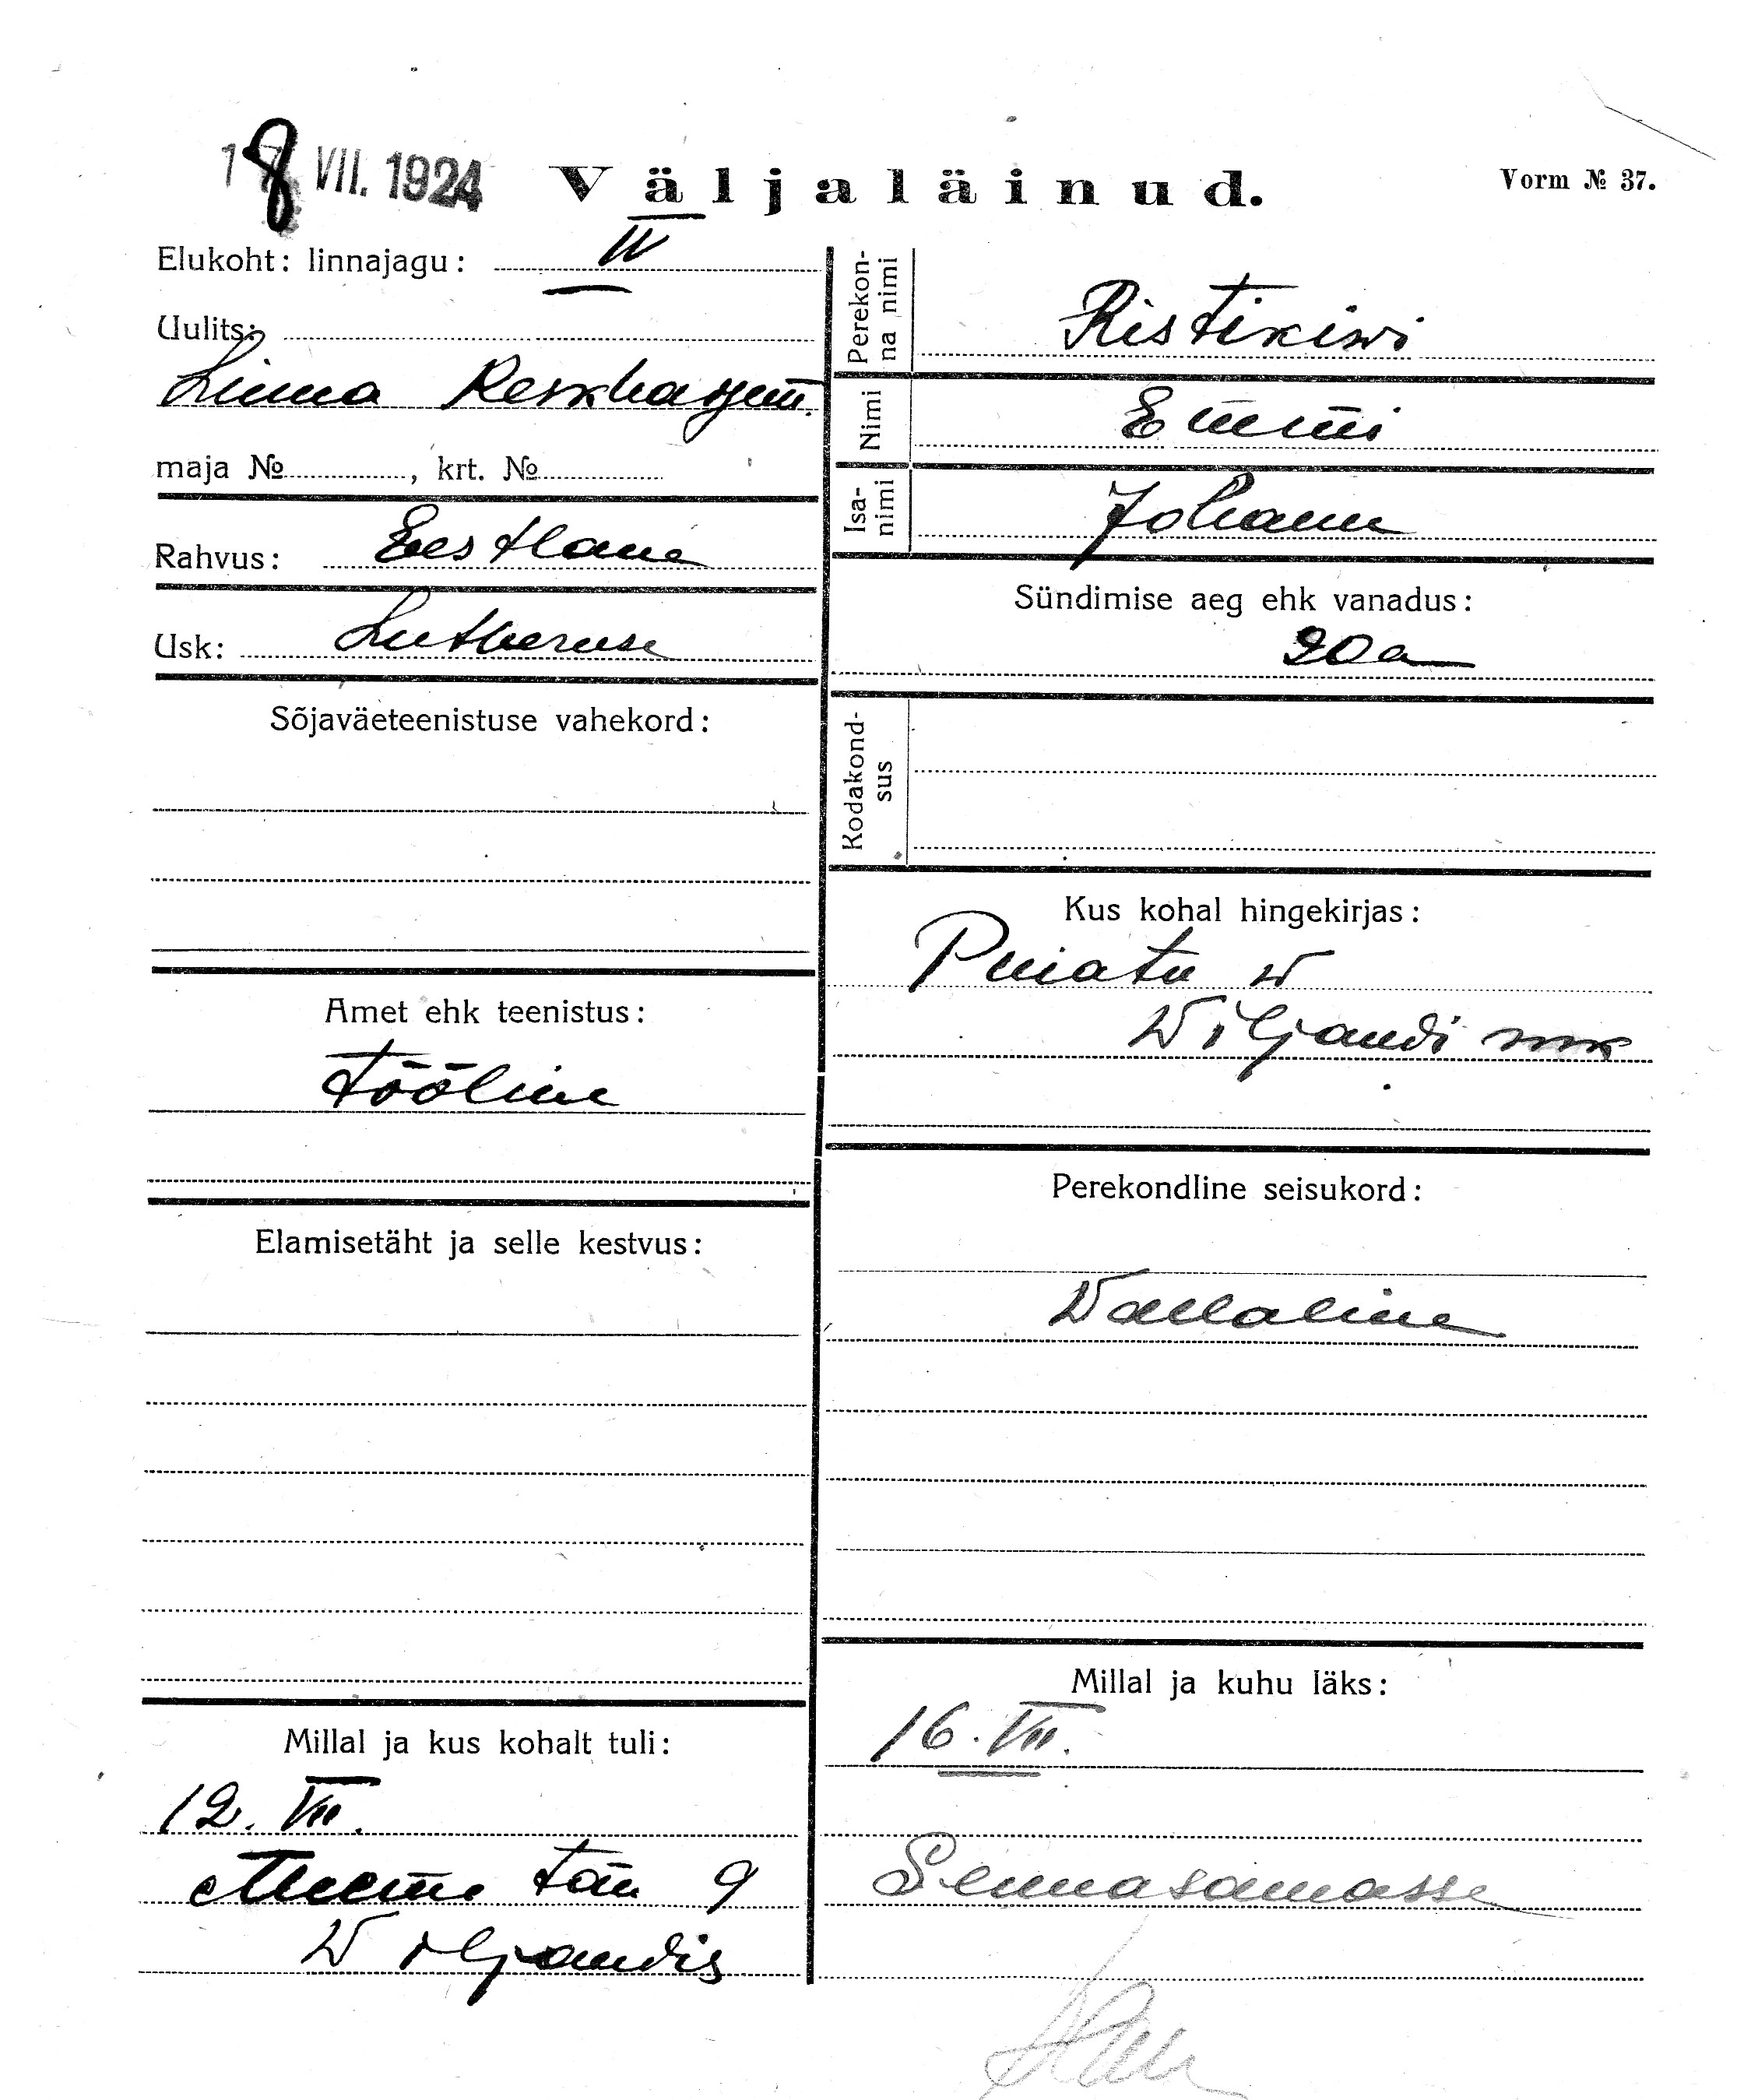 18 VII. 1924
Väljaläinud.
Vorm № 37.
Elukoht: linnajagu: IV
Uulits:
Linna Keskhaigem.
maja № , krt. №
Rahvus: Eestlane
Usk: Lutheruse
Sõjaväeteenistuse vahekord:
Amet ehk teenistus:
Tööline
Elamisetäht ja selle kestvus:
Millal ja kus kohalt tuli:
12. VII.
tän 9
Wiljandis
Perekon-
na nimi
Ristikiwi
Nimi
Emmi
Isa-
nimi
Johann
Sündimise aeg ehk vanadus:
20 a
Kodakond-
sus
Kus kohal hingekirjas:
Puiatu w
Wiljandi mk
Perekondline seisukord:
Wallaline
Millal ja kuhu läks:
16. VII.
Sennasamasse